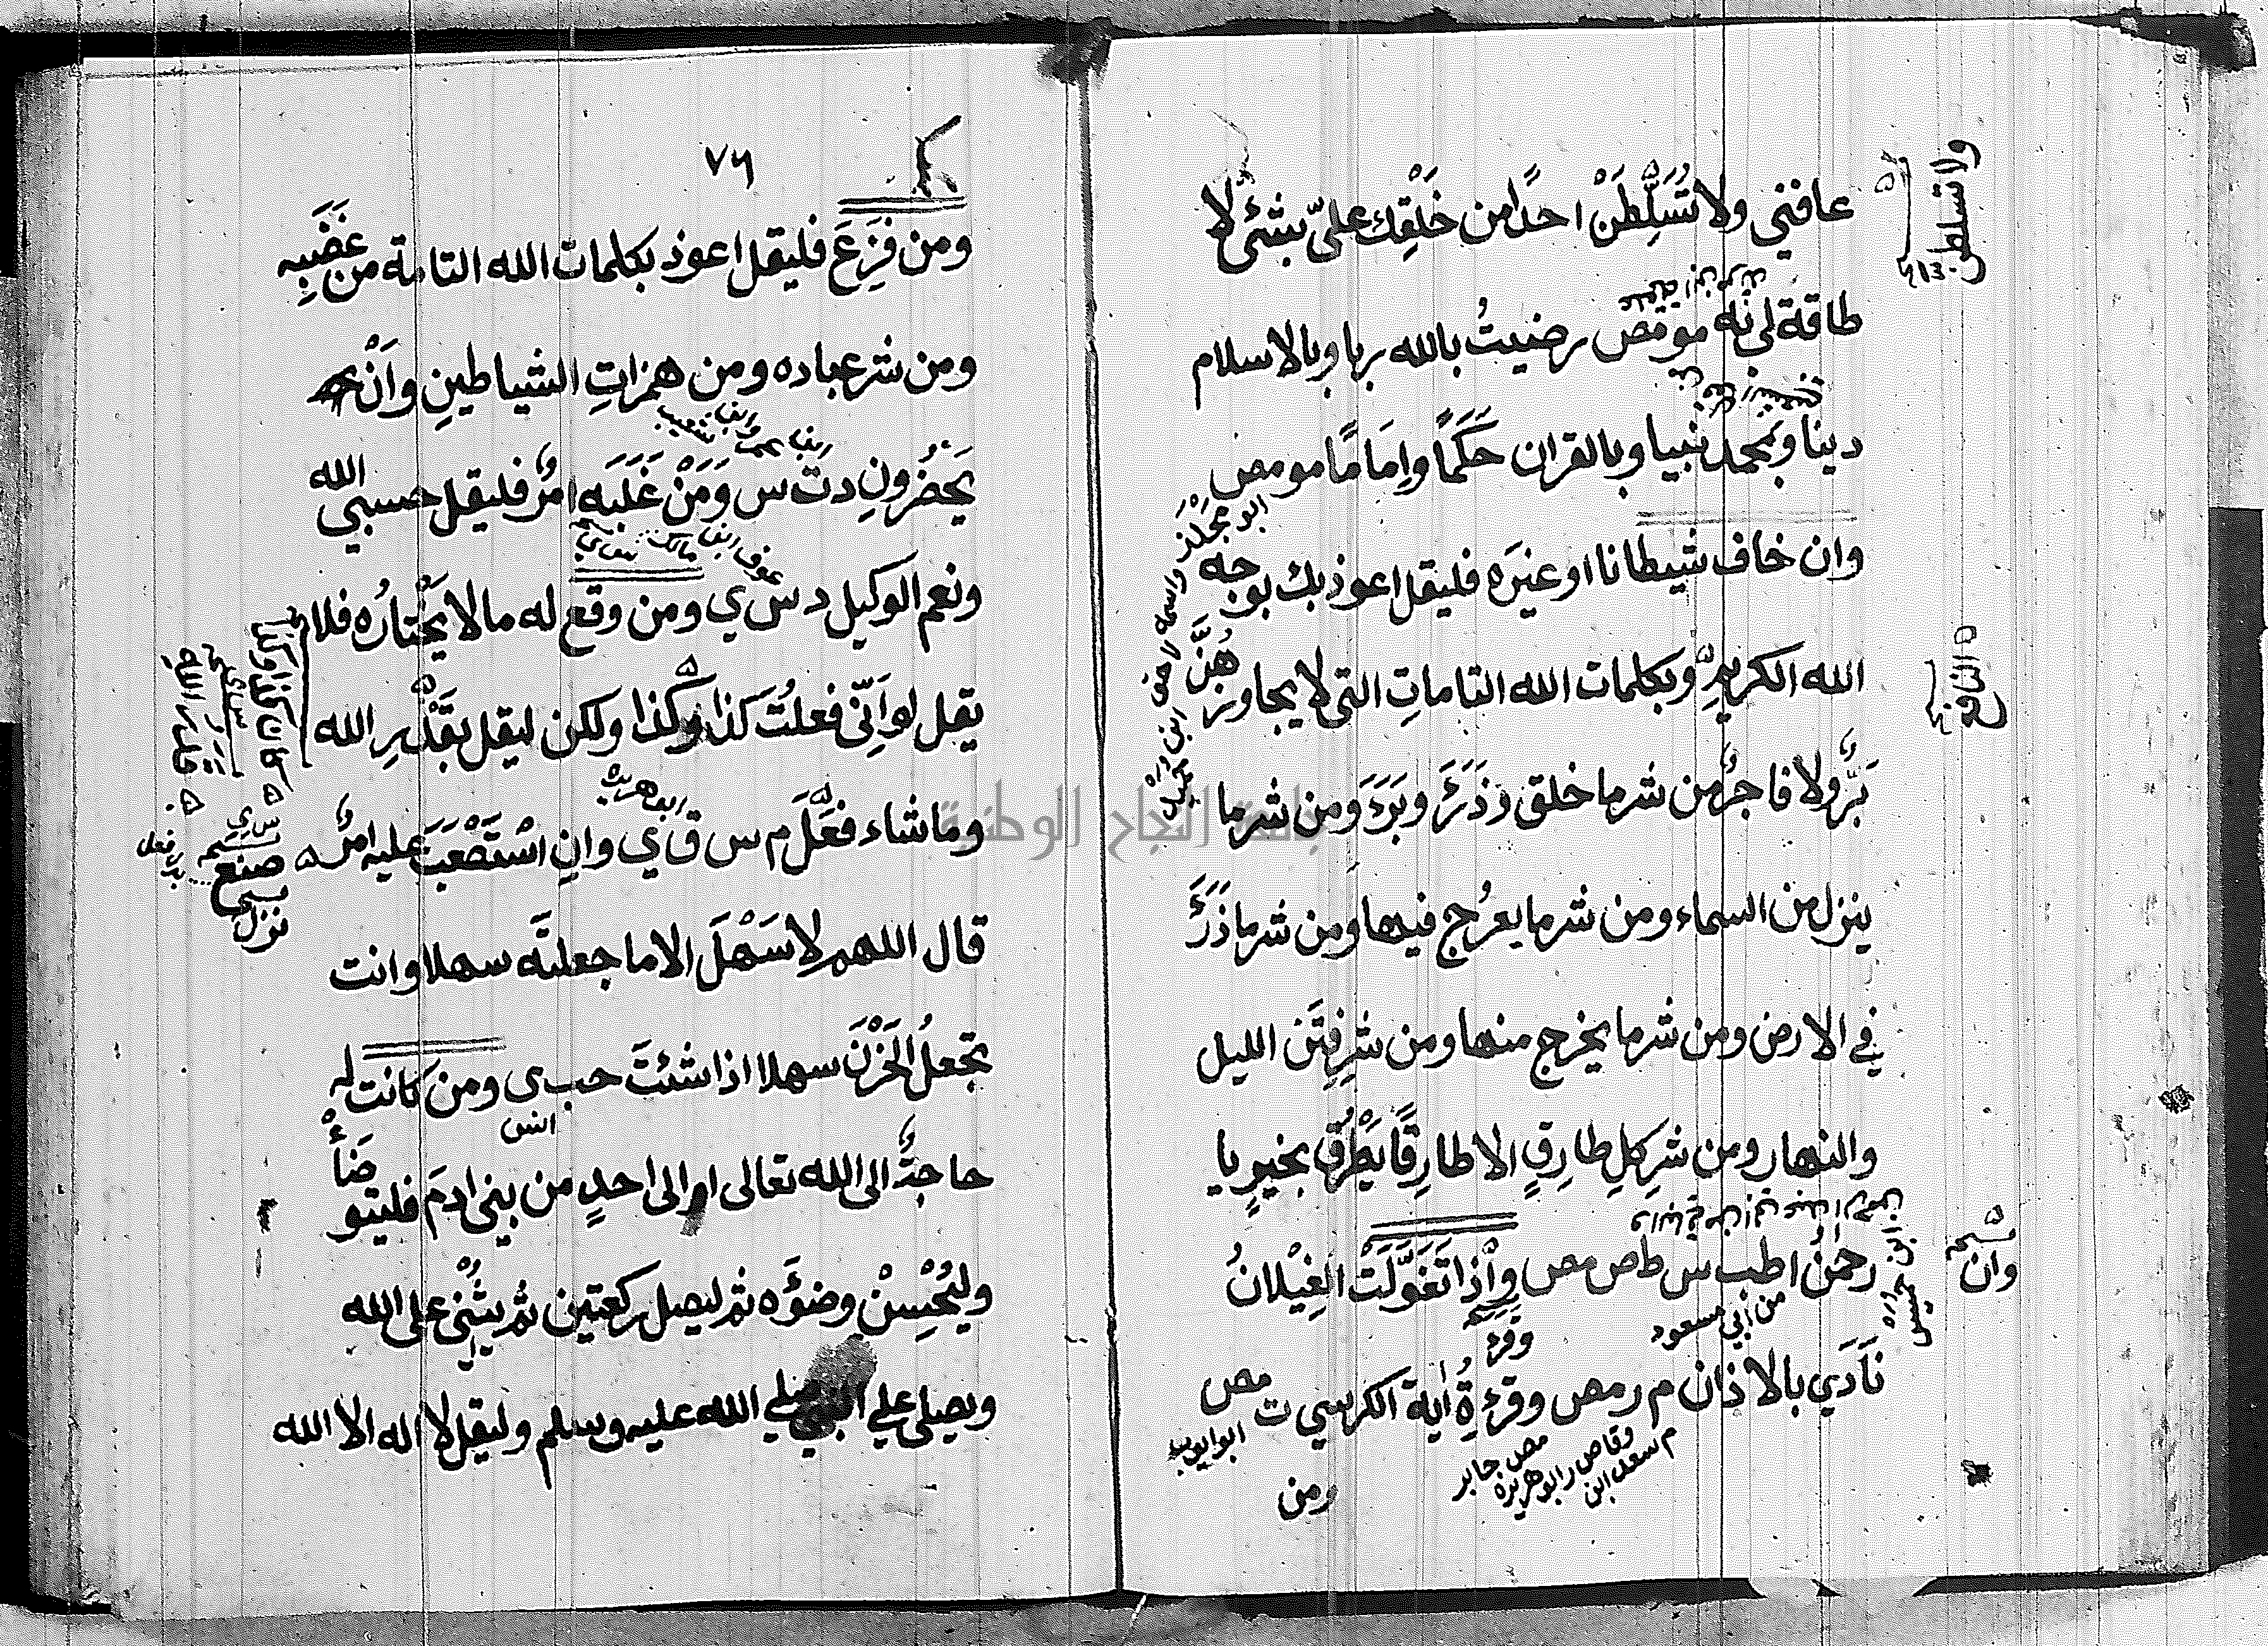 عافني ولا تُسَلِّطَنْ احدًا من خَلْقِكَ عليّ بشئ لا
طاقة لي به مو مص رضيتُ بالله ربا وبالاسلام
دينا وبمحمد نبيا وبالقران حَكَمًا وإمَامًا مو مص
وان خاف شيطانا او غيرَه فليقل اعوذ بك بوجه
الله الكريمِ وبكلمات الله التاماتِ التي لا يجاوزهُنَّ
بَرٌّ ولا فاجرٌ من شر ما خلق وذَرَءَ وبَرَءَ ومن شر ما
ينزل من السماء ومن شر ما يعرُج فيها ومن شر ما ذَرَءَ
في الارض ومن شر ما يخرج منها ومن شرِ فِتَنِ الليل
والنهار ومن شرِ كلِ طارِقٍ الا طارِقًا يَطْرُقُ بخيرٍ يا
رحمٰنُ ا طب س ط ص مص واِذا تَغَوَّلَتْ الغِيْلانُ
نَادَي بالاذان م ر مص وقرءةُ اٰية الكرسي ت مص
ومن
ولا تسلطن
النافع
وان
ابو مجلز واسمه لاحق ابن حميد
من أبي مسعود
وقرء
م سعد ابن
وقاص ر ابو هريرة
مص جابر
ابو ايوب
٧٦
ومن فَزِعَ فليقل اعوذ بكلمات الله التامة من غَضَبِه
ومن شر عباده ومن همزاتِ الشياطينِ وَاَنْ
يَحْضُرُونِ د ت س وَمَنْ غَلَبَه امرٌ فليقل حسبي الله
ونعم الوكيل د س ي ومن وقع له مالا يَخْتارُه فلا
يقل لو اَنِّي فعلتُ كذا وكذا ولكن ليقل بقَدَرِ الله
وما شاء فَعَلَ م س ق ي وانِ اسْتَصْعَبَ عليه امرٌ
قال اللهم لا سَهْلَ الا ما جعلتَه سهلا وانت
تجعلُ الحَزْنَ سهلا اذا شئتَ حب ي ومن كانت له
حاجةٌ الى الله تعالى او الى احدٍ من بني ادمَ فليتوضَأْ
وليُحْسِنْ وضوءَه ثم ليصل ركعتين ثم يثني على الله
ويصلي علي النبي صلي الله عليه وسلم وليقل لا اله الا الله
عوف ابن مالك
ابو هريرة
انس
صنع
بدل فعل
جامعة النجاح الوطنية